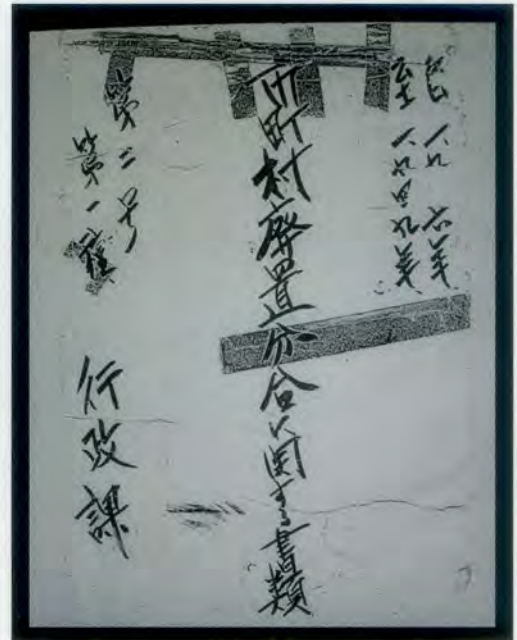 自 一九一六年
至 一九四九年
市町村廃置分合に関する書類
第二号
第一種
行政課